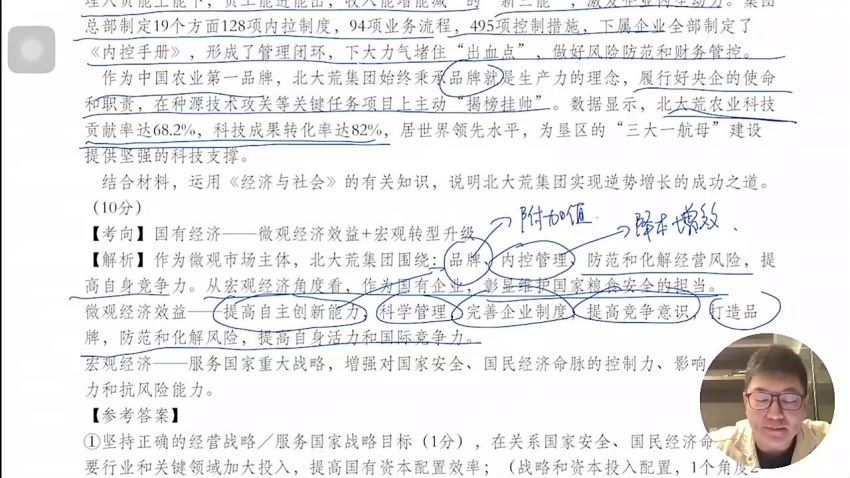 理人员能上能下，员工能进能出，收入能增能减"的"新三能"，激发企业内生动力。集团
总部制定19个方面128项内控制度，94项业务流程，495项控制措施，下属企业全部制定了
《内控手册》，形成了管理闭环，下大力气堵住"出血点"，做好风险防范和财务管控。
作为中国农业第一品牌，北大荒集团始终秉承品牌就是生产力的理念，履行好央企的使命
和职责，在种源技术攻关等关键任务项目上主动"揭榜挂帅"。数据显示，北大荒农业科技
贡献率达68.2%，科技成果转化率达82%，居世界领先水平，为垦区的"三大一航母"建设
提供坚强的科技支撑。
结合材料，运用《经济与社会》的有关知识，说明北大荒集团实现逆势增长的成功之道。
（10分）
附加值
降本增效
【考向】国有经济——微观经济效益+宏观转型升级
【解析】作为微观市场主体，北大荒集团围绕：品牌、内控管理、防范和化解经营风险，提
高自身竞争力。从宏观经济角度看，作为国有企业，彰显维护国家粮食安全的担当。
微观经济效益——提高自主创新能力，科学管理，完善企业制度，提高竞争意识，打造品
牌，防范和化解风险，提高自身活力和国际竞争力。
宏观经济——服务国家重大战略，增强对国家安全、国民经济命脉的控制力、影响
力和抗风险能力。
【参考答案】
①坚持正确的经营战略／服务国家战略目标（1分），在关系国家安全、国民经济命
要行业和关键领域加大投入，提高国有资本配置效率；（战略和资本投入配置，1个角度2